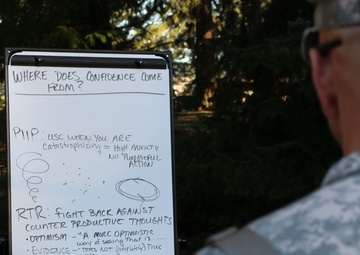 WHERE DOES CONFIDENCE COME
FROM?
PIIP: USE WHEN YOU ARE
Catastrophizing = HIGH ANXIETY
NO PURPOSEFUL
ACTION
RTR: FIGHT BACK AGAINST
COUNTER PRODUCTIVE THOUGHTS
• OPTIMISM - "A MORE OPTIMISTIC
way of seeing THAT is ....
• EVIDENCE - "THATS NOT (completely) TRUE